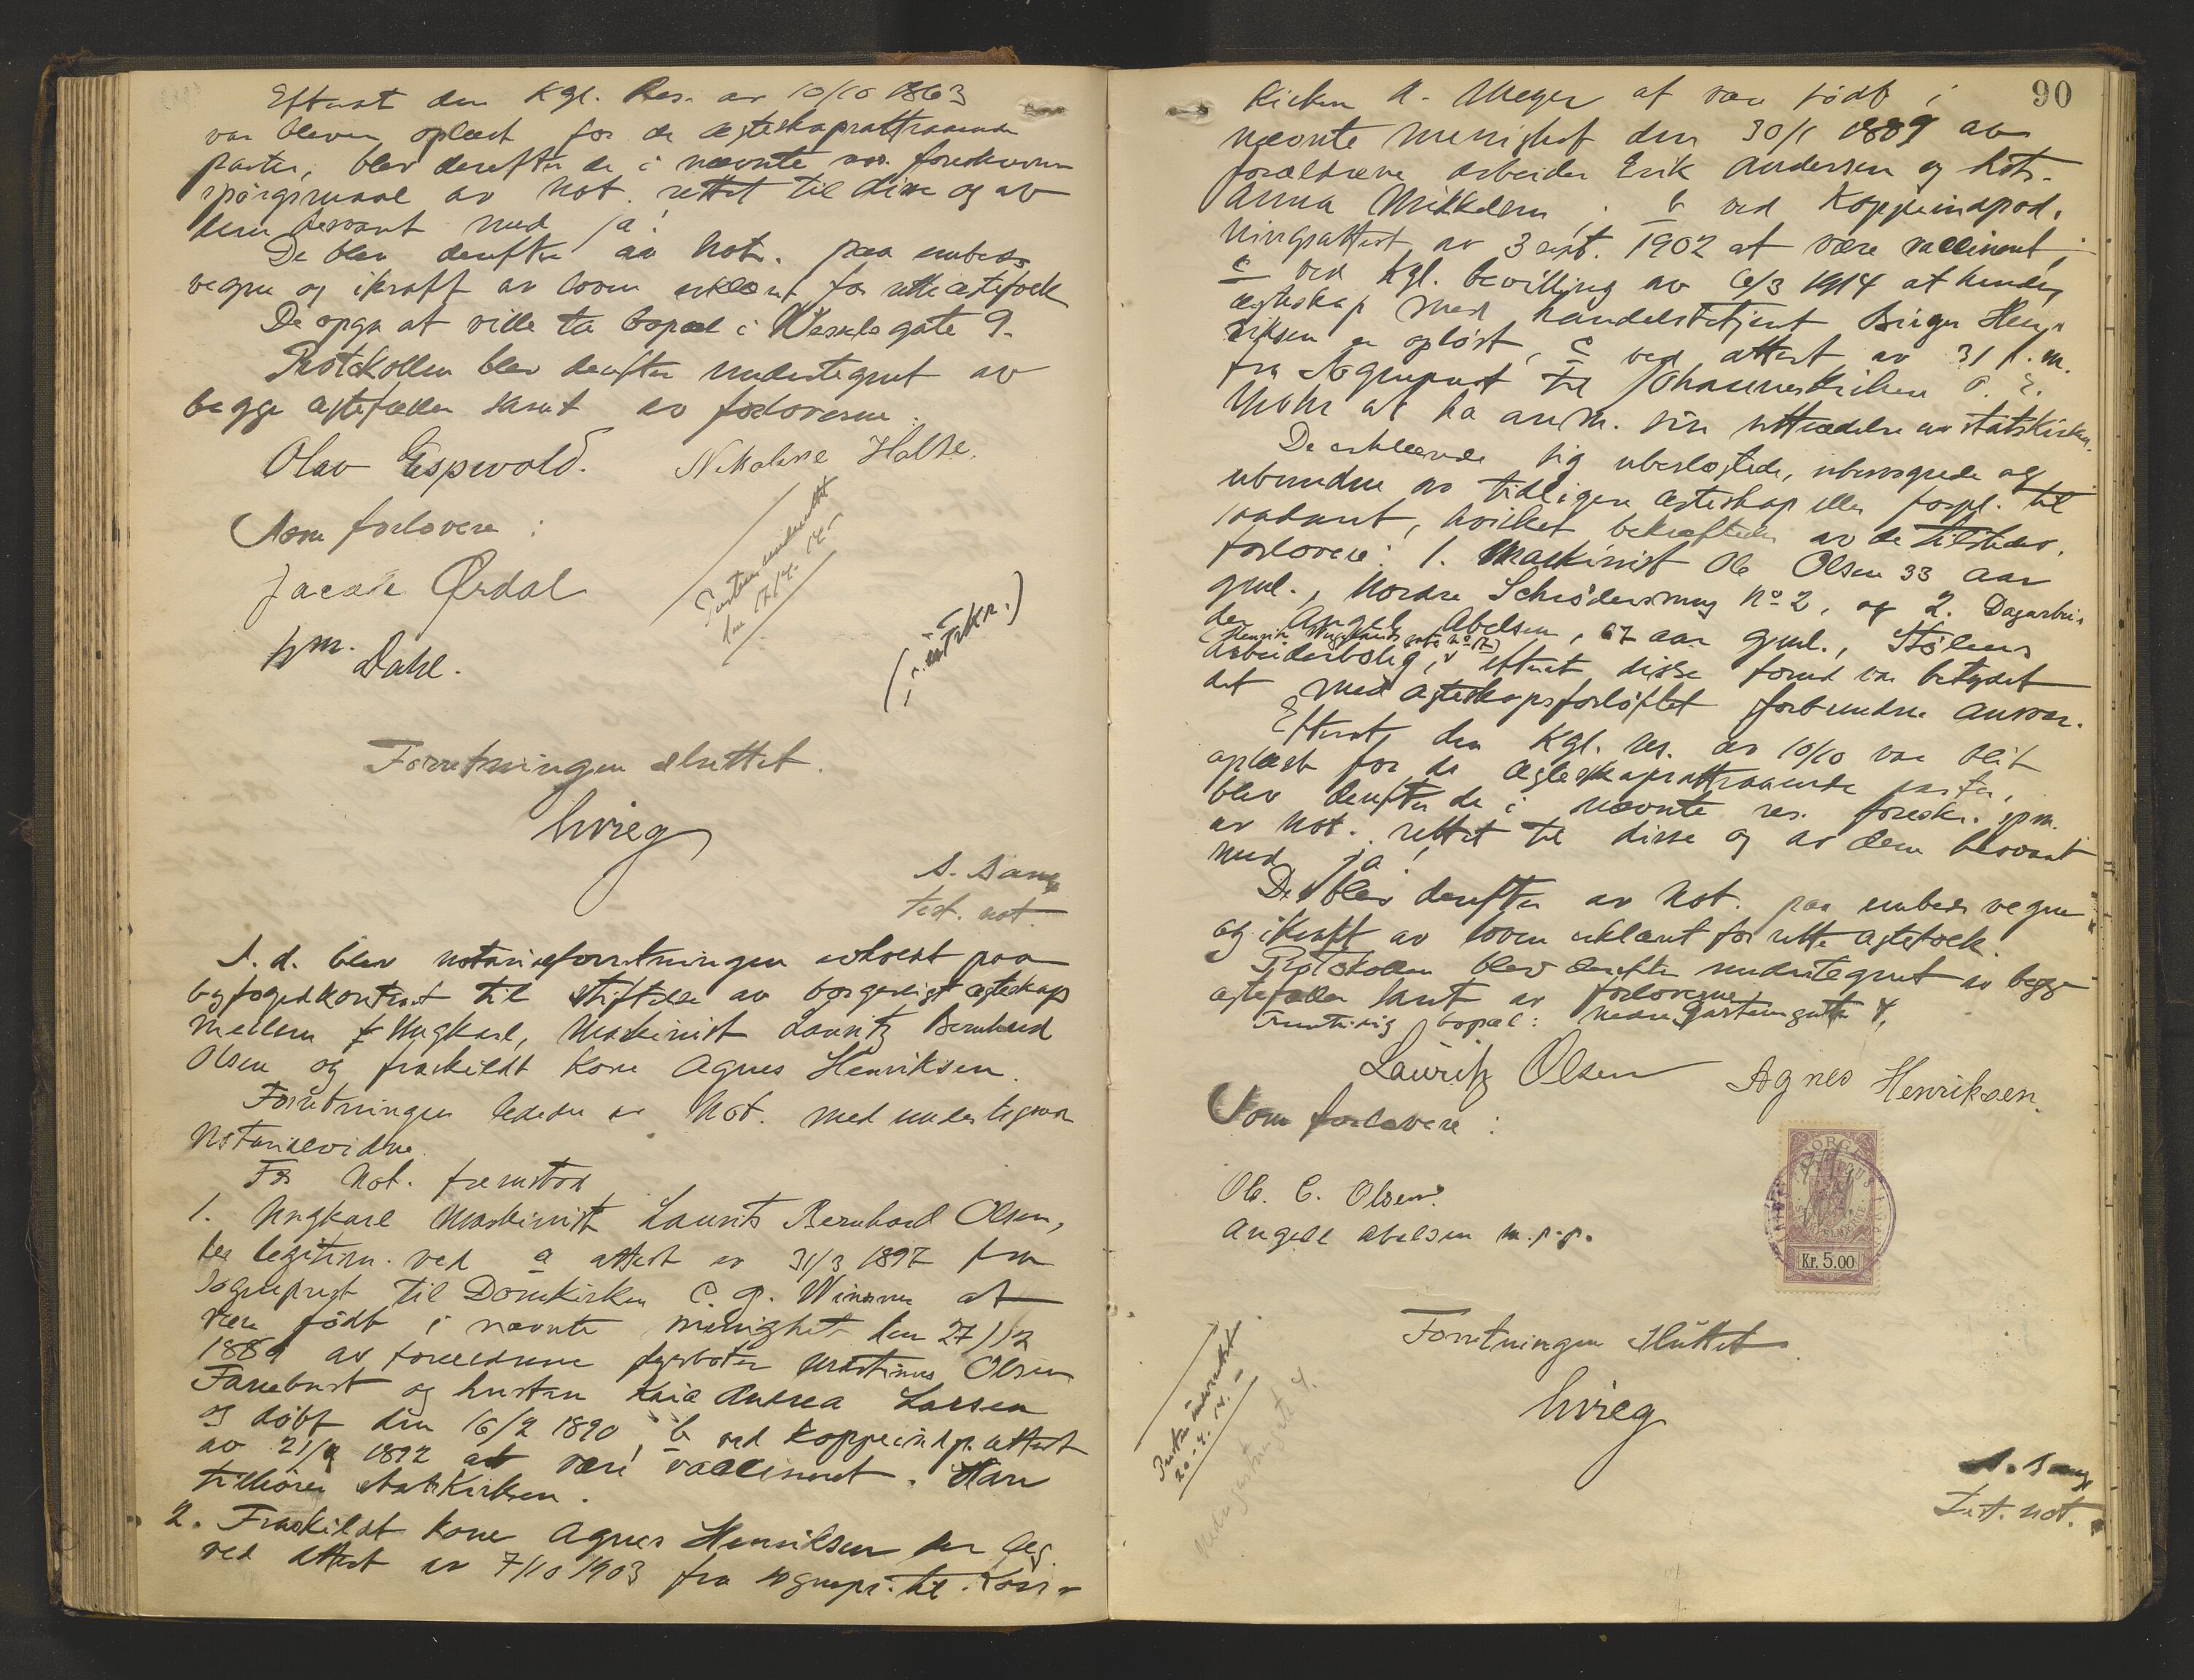 Efterat den Kgl. Res. av 10/10 1863
var bleven oplæst for de ægteskapsattraaende
parter, blev derefter de i nævnte res. foreskrevne
spörgsmaal av Not. rettet til disse og av
dem besvart med ja!
De blev derefter av Not. paa embeds
vegne og ikraft av loven erklært for rette ægtefolk
De opga at ville ta bopæl i Wessels gate 9.
Protokollen blev derefter undertegnet av
begge ægtefæller samt av forloverne.
Olav Espevold. Nikoline Halse.
Som forlovere:
Jacob Ørdal
Dahl.
Presten underrettet
den 17/4. 14.
Forretningen sluttet.
Krieg
A. Bang
test. not.
S. d. blev notarialforretningen avholdt paa
byfogedkontoret til stiftelse av borgerligt ægteskap
mellem Ungkarl, Maskinist Lauritz Bernhard
Olsen og fraskildt kone Agnes Henriksen.
Forretningen lededes av Not. med undertegnede
Notarialvidne.
For Not. fremstod
1. Ungkarl Maskinist Laurits Bernhard Olsen,
der legitim. ved a attest av 31/3 1897 fra
Sogneprest til Domkirken C. P. Winsnes at
være födt i nævnte menighet den 27/12
1889 av forældrene Olsen
Fanebust og hustru Andrea Larsen
og döbt den 16/2 1890, b ved Koppeindp. attest
av 21/9 1892 at være vaccineret. Han
tilhörer statskirken.
2. Fraskildt kone Agnes Henriksen der leg.
ved attest av 7/10 1903 fra sognepr. til Kors-
90
kirken A. Meyer at være födt i
nævnte menighet den 30/1 1889 av
forældrene arbeider Erik Andersen og hstr.
Anna Mikkelsen; b ved Koppeindpod-
ningsattest av 3 sept. 1902 at være vaccineret;
c ved Kgl. bevilling av 6/3 1914 at hendes
ægteskap med handelsbetjent Birger Hen-
riksen er oplöst, c ved attest av 31 f. m.
fra Sogneprest til Johanneskirken
Mohr at ha anm. sin uttrædelse av statskirken.
De erklærede sig ubeslægtede, ubesvogrede og
ubundne av tidligere ægteskap eller forpl. til
saadant, hvilket bekræftedes av de tilstedev.
forlovere: 1. Maskinist Ole Olsen 33 aar
gml., Nordre Schrödersmug No 2, og 2. Dagarbei-
der Angel Abelsen, 67 aar gml., Stölens
(Henrik Wergelands gate No 17)
Arbeiderbolig, efterat disse forud var betydet
det med ægteskapsforlöftet forbundne ansvar.
Efterat den Kgl. res. av 10/10 var blit
oplæst for de ægteskapsattraaende parter,
blev derefter de i nævnte res. foreskr. spm.
av Not. rettet til disse og av dem besvart
med ja!
De blev derefter av Not. paa embeds vegne
og ikraft av loven erklært for rette ægtefolk.
Protokollen blev derefter undertegnet av begge
ægtefæller samt av forloverne.
Fremtidig bopæl: Nedre 4.
Lauritz Olsen Agnes Henriksen.
Som forlovere:
Ole C. Olsen.
Angell Abelsen m.p.p.
NORGE
Kr. 5.00
Forretningen sluttet
Krieg
Presten underrettet
20-4. 14.
A. Bang
Test. not.